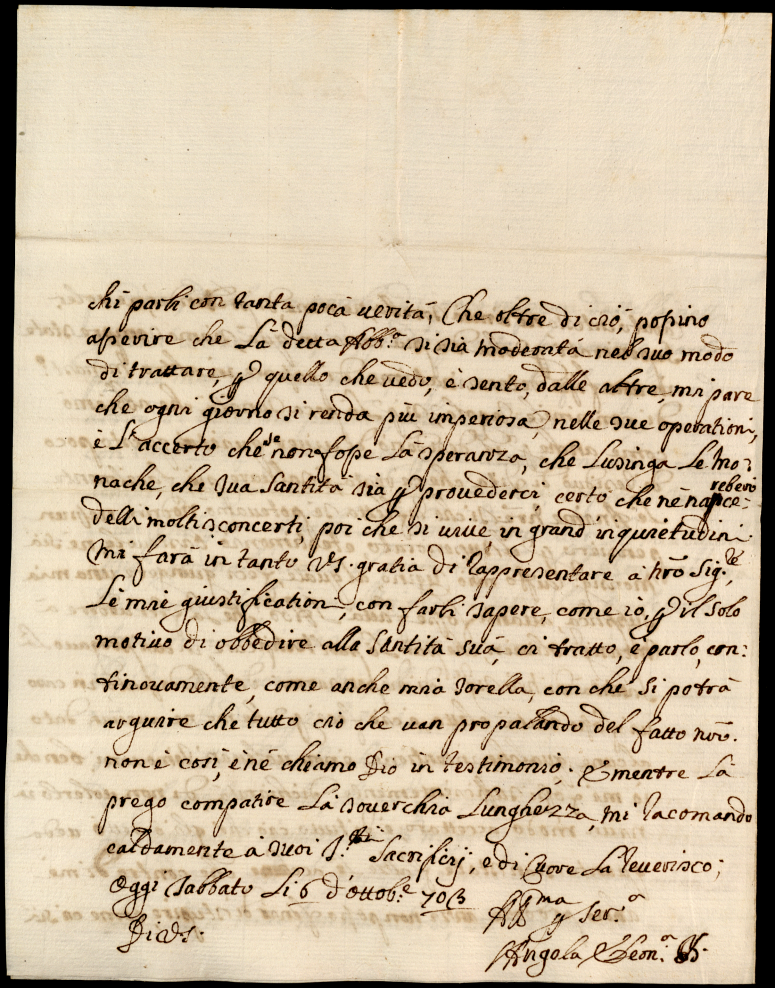 chi parli con tanta poca verità, che oltre di ciò, possino
asserire che La detta Abb.ª si sia moderata nel suo modo
di trattare, p quello che vedo, è sento, dalle altre, mi pare
che ogni giorno si renda più imperiosa, nelle sue operationi,
è L' accerto che se non fosse La speranza, che Lusinga Le Mo:
nache, che sua Santità sia p provederci, certo che nè nasce:
rebero
delli molti sconcerti, poi che si vive, in grand' inquietudini
Mi farà in tanto VS. gratia di rappresentare à nrõ Sig.re
Le mie giustificationi, con farli sapere, come io, p il solo
motivo di obbedire alla Santità sua, ci tratto, è parlo, con:
tinovamente, come anche mia sorella, con che si potrà
arguire che tutto ciò che van propalando del fatto nrõ.
non è così, è nè chiamo Dio in testimonio. E mentre La
prego compatire La soverchia Lunghezza, mi racomando
caldamente à suoi S.ti Sacrificij, e di Cuore La reverisco;
Oggi Sabbato Li 6 d'ottob.e 703
Di VS.
Aff.ma Ser.a
Angola Leon.a